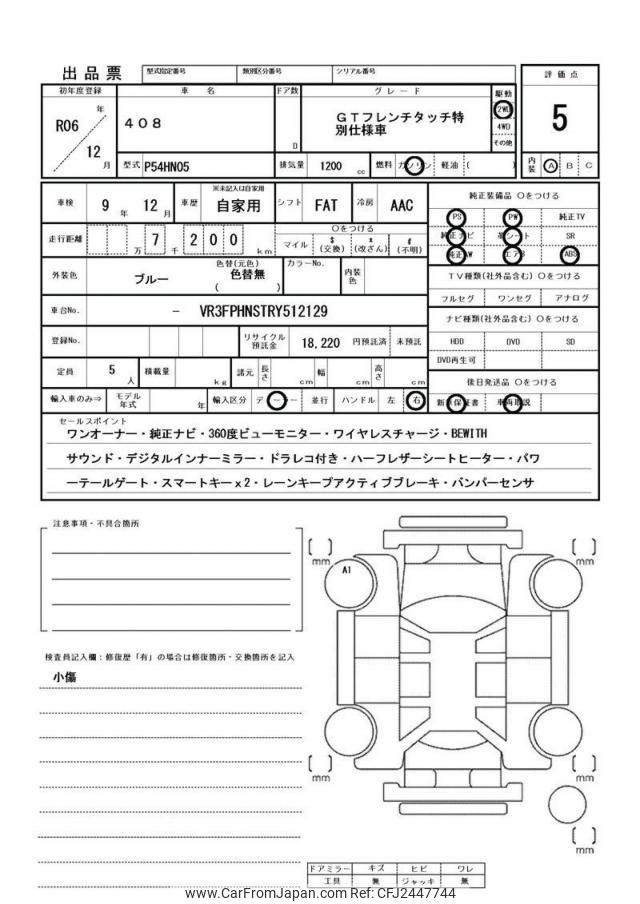 出品票
型式指定番号 類別区分番号 シリアル番号
評価点
5
内装 A B C
初年度登録 車名 ドア数 グレード 駆動
R06 年 12 月
408
D
GTフレンチタッチ特
別仕様車
2WD
4WD
その他
型式 P54HN05 排気量 1200 cc 燃料 ガソリン 軽油 ( )
車検 9 年 12 月 車歴 ※未記入は自家用 自家用 シフト FAT 冷房 AAC
走行距離 万 7 千 2 0 0 km
○をつける
マイル $(交換) x(改ざん) #(不明)
外装色 ブルー 色替(元色) 色替無 ( ) カラーNo. 内装色
車台No. - VR3FPHNSTRY512129
登録No. リサイクル預託金 18,220 円預託済 未預託
定員 5 人 積載量 kg 諸元 長さ cm 幅 cm 高さ cm
輸入車のみ⇒ モデル年式 年 輸入区分 ディーラー 並行 ハンドル 左 右
純正装備品 ○をつける
PS PW 純正TV
純正ナビ 革シート SR
純正AW エアB ABS
TV種類(社外品含む) ○をつける
フルセグ ワンセグ アナログ
ナビ種類(社外品含む) ○をつける
HDD DVD SD
DVD再生可
後日発送品 ○をつける
新車保証書 車両取説
セールスポイント
ワンオーナー・純正ナビ・360度ビューモニター・ワイヤレスチャージ・BEWITH
サウンド・デジタルインナーミラー・ドラレコ付き・ハーフレザーシートヒーター・パワ
ーテールゲート・スマートキーx2・レーンキープアクティブブレーキ・バンパーセンサ
注意事項・不具合箇所
検査員記入欄：修復歴「有」の場合は修復箇所・交換箇所を記入
小傷
A1
[ ] mm
[ ] mm
[ ] mm
[ ] mm
[ ] mm
ドアミラー キズ ヒビ ワレ
工具 無 ジャッキ 無
www.CarFromJapan.com Ref: CFJ2447744